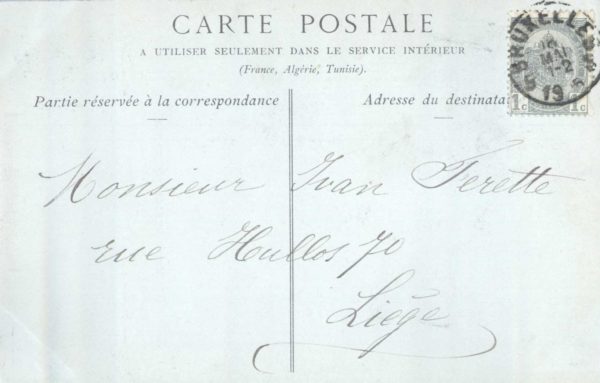 CARTE POSTALE
A UTILISER SEULEMENT DANS LE SERVICE INTÉRIEUR
(France, Algérie, Tunisie).
Partie réservée à la correspondance
Adresse du destinata
BRUXELLES
19
1c 1c
Monsieur Ivan Ferette
rue Hullos 70
Liège